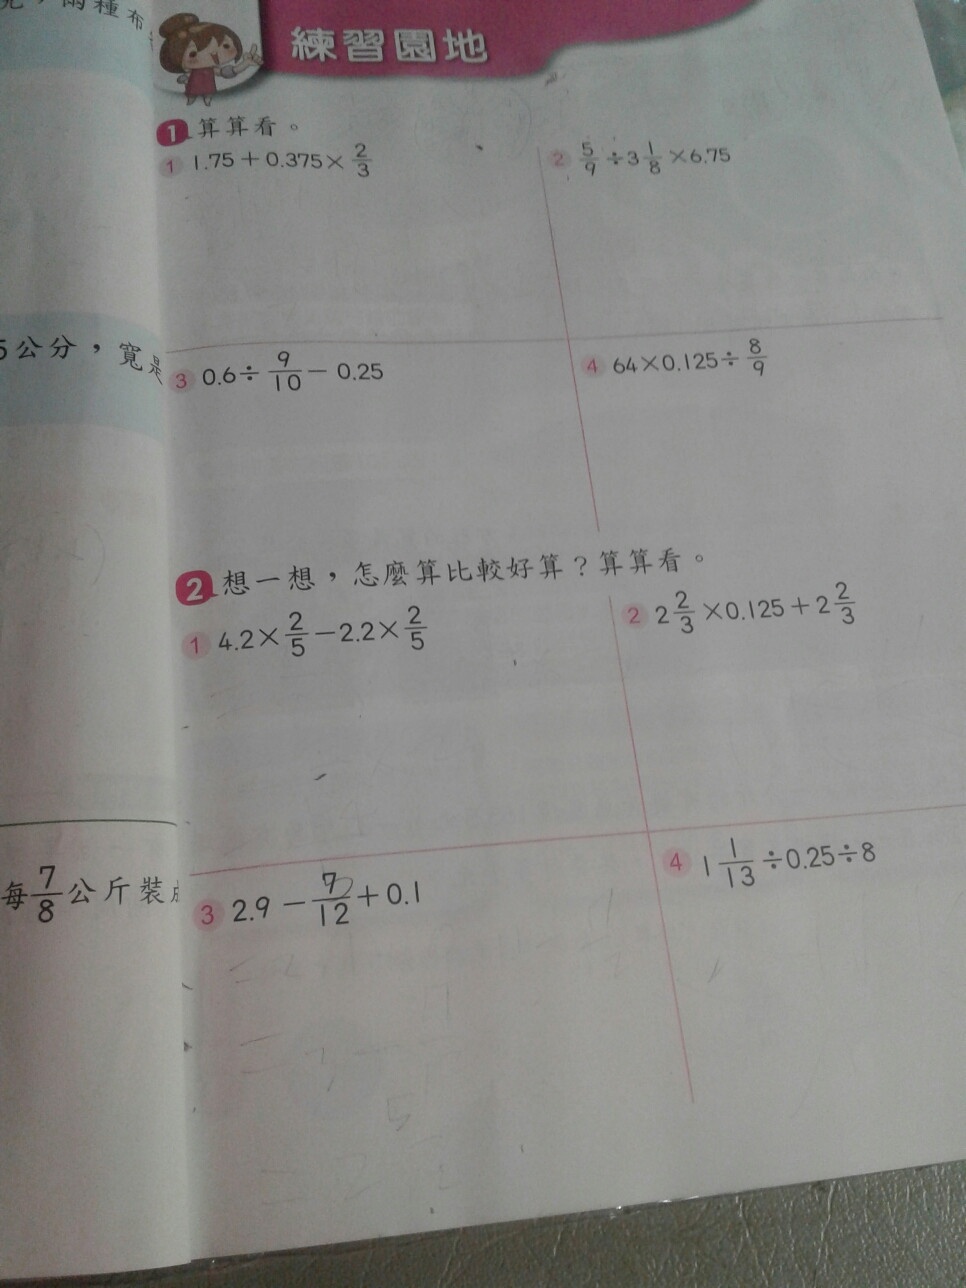 兩種布
練習園地
1 算算看。
1 1.75+0.375×2/3
2 5/9÷3 1/8×6.75
5公分，寬是
3 0.6÷9/10－0.25
4 64×0.125÷8/9
2 想一想，怎麼算比較好算？算算看。
1 4.2×2/5－2.2×2/5
2 2 2/3×0.125+2 2/3
每7/8公斤裝
3 2.9－7/12+0.1
4 1 1/13÷0.25÷8